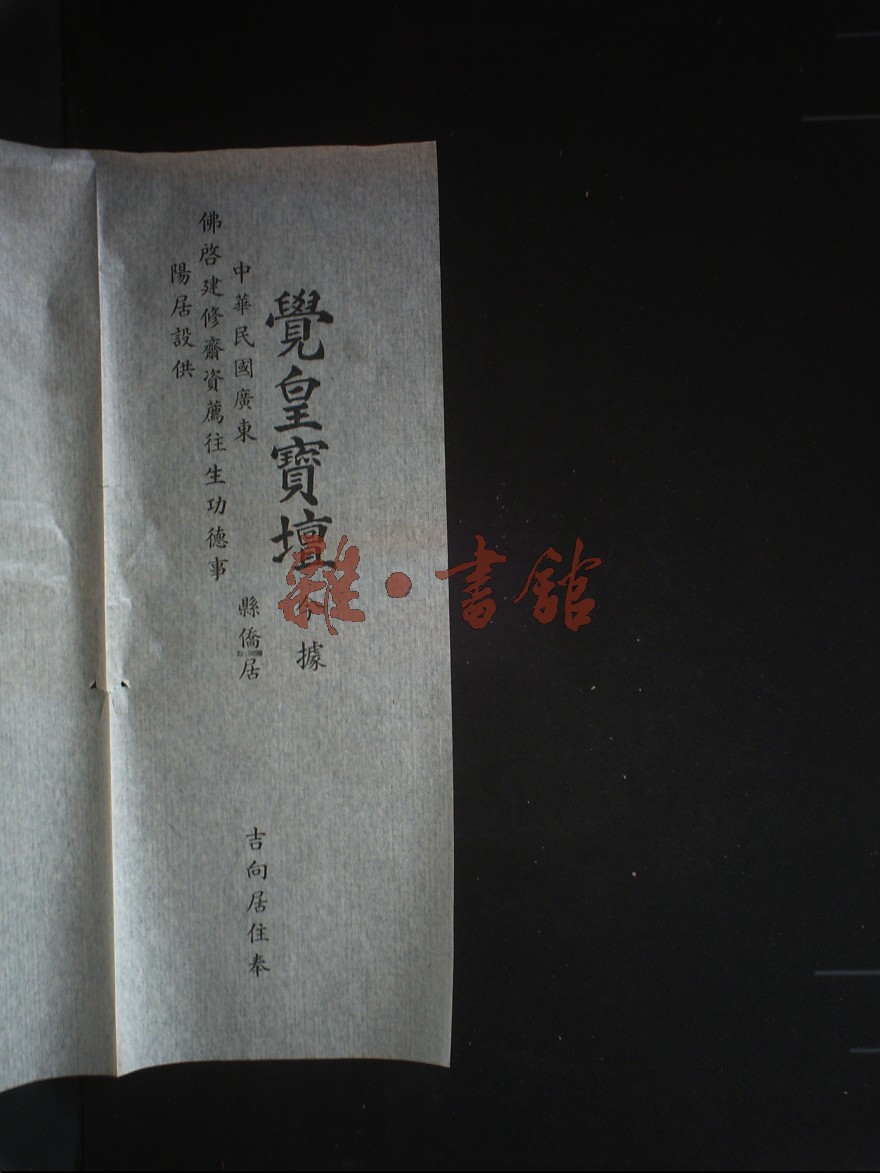 覺皇寶壇 今據
中華民國廣東 縣僑居 吉向居住奉
佛啓建修齋資薦往生功德事
陽居設供
雜·書館